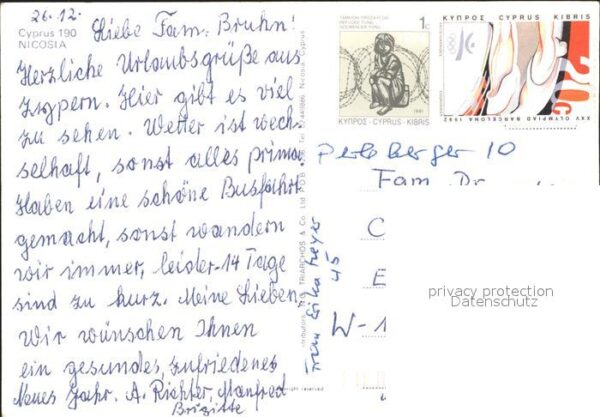 26.12.
Cyprus 190
NICOSIA
Liebe Fam. Bruhn!
Herzliche Urlaubsgrüße aus
Zypern. Hier gibt es viel
zu sehen. Wetter ist wech-
selhaft, sonst alles prima
Haben eine schöne Busfahrt
gemacht, sonst wandern
wir immer, leider 14 Tage
sind zu kurz. Meine Lieben,
Wir wünschen Ihnen
ein gesundes, zufriedenes
Neues Jahr. A. Richter, Manfred
Brigitte
TRIARCHOS & Co. Ltd. P.O.B.
Nicosia Cyprus
right reserved
1c
1991
ΚΥΠΡΟΣ·CYPRUS·KIBRIS
ΚΥΠΡΟΣ CYPRUS KIBRIS
XXV OLYMPIAD BARCELONA 1992
Perleberger 10
Fam. Dr.
C
E
W-1
Frau Erika Meyer
45
privacy protection
Datenschutz